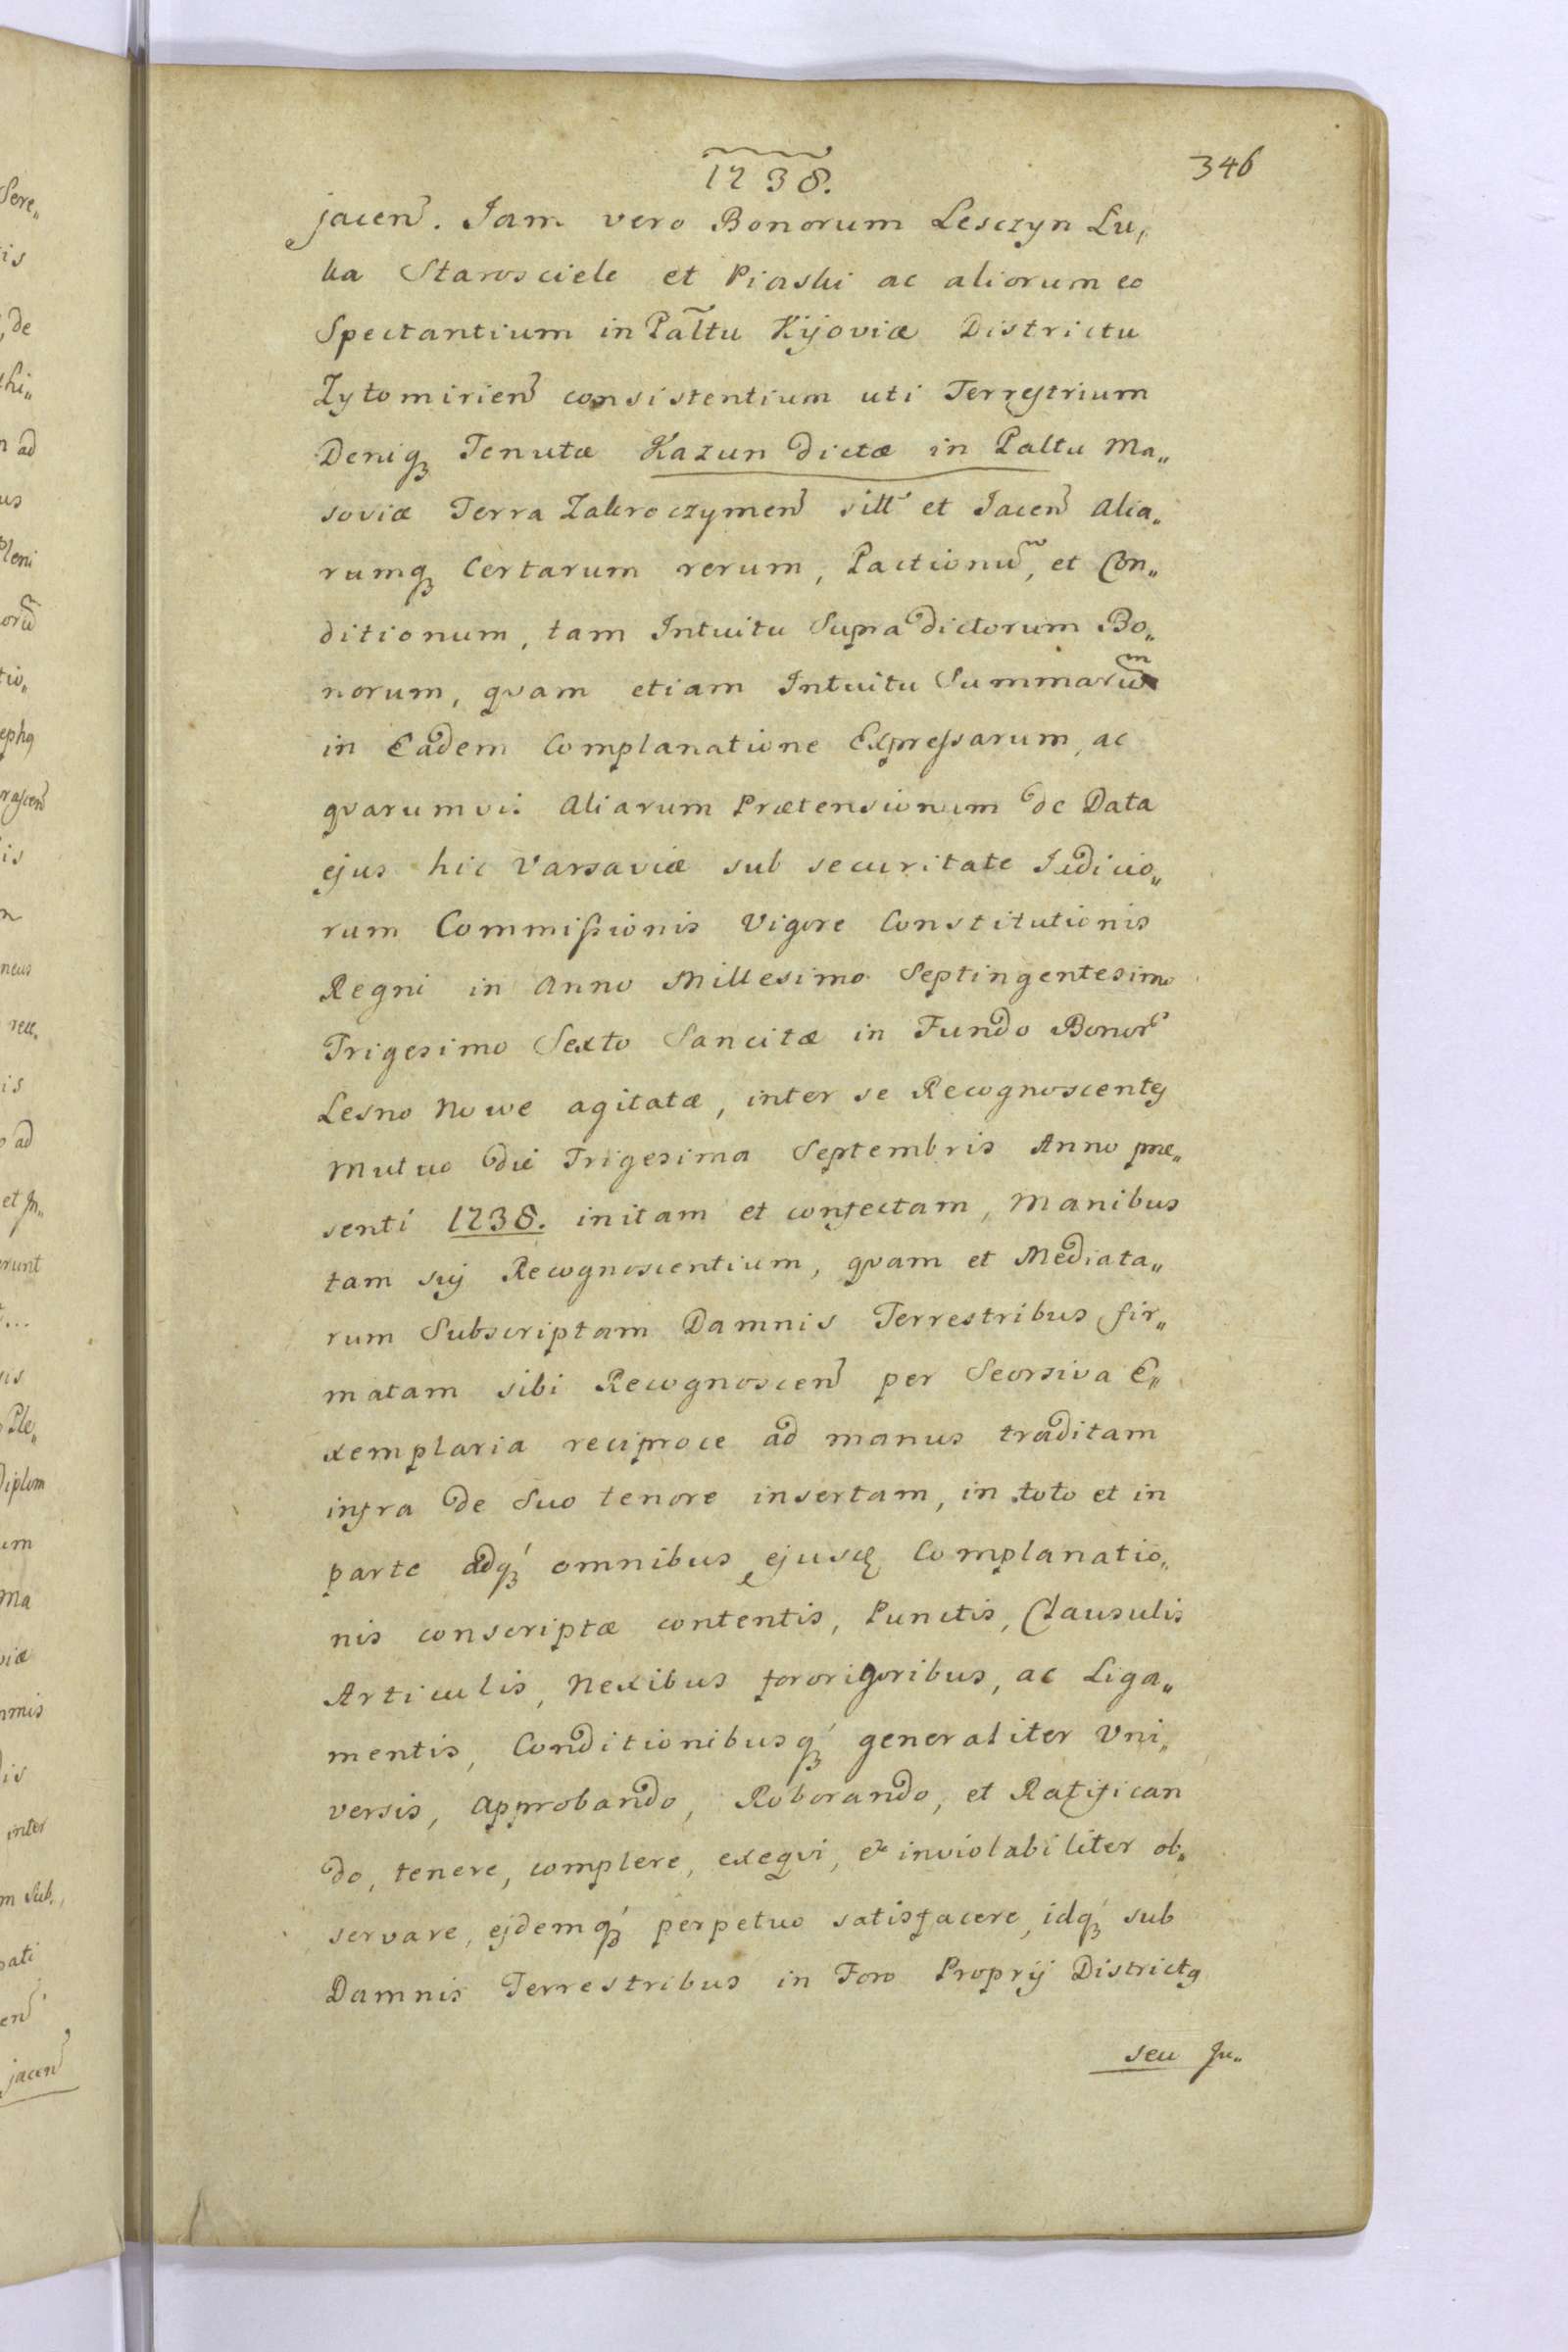 1738.
346
jacen̄. Iam vero Bonorum Lesczyn Lu„
ka Starosciele et Piaski ac aliorum eo
Spectantium in Pal̃tu Kijoviæ Districtu
Zytomirien̄ consistentium uti Terrestrium
Deniq̨ Tenutæ Kazun dictæ in Paltu Ma„
soviæ Terra Zakroczymen̄ sitt' et Iacen̄ Alia„
rumq̨ Certarum rerum, Pactionũ, et Con„
ditionum, tam Intuitu Supra dictorum Bo„
norum, qvam etiam Intuitu Summarũ
in Eadem Complanatione Expressarum, ac
qvarumvis Aliarum Prætensionum de Data
ejus hic Varsaviæ sub securitate Iudicio„
rum Commissionis Vigore Constitutionis
Regni in Anno Millesimo Septingentesimo
Trigesimo Sexto Sancitæ in Fundo Bonor̃
Lesno Nowe agitatæ, inter se Recognoscentes
Mutuo die Trigesima Septembris Anno præ„
senti 1738. initam et confectam, Manibus
tam sui Recognoscentium, qvam et Mediata„
rum Subscriptam Damnis Terrestribus fir„
matam sibi Recognoscen̄ per Seorsiva E„
xemplaria reciproce ad manus traditam
infra de Suo tenore insertam, in toto et in
parte adq̨́ omnibus ejusq̨ Complanatio„
nis conscriptæ contentis, Punctis, Clausulis
Articulis, Nexibus fororigoribus, ac Liga„
mentis, Conditionibusq̨́ generaliter Vni„
versis, Approbando, Roborando, et Ratifican
do, tenere, complere, exeqvi, & inviolabiliter ob„
servare, ejdemq̨́ perpetuo satisfacere, idq̨́ sub
Damnis Terrestribus in Foro Proprij Districtq
seu Ju„